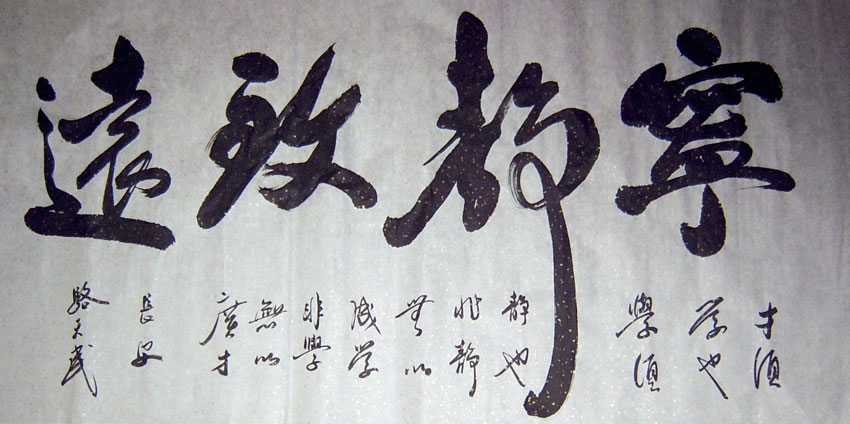 寧靜致遠
才須
学也
學須
静也
非静
無以
成学
非學
無以
廣才
長安
駱天